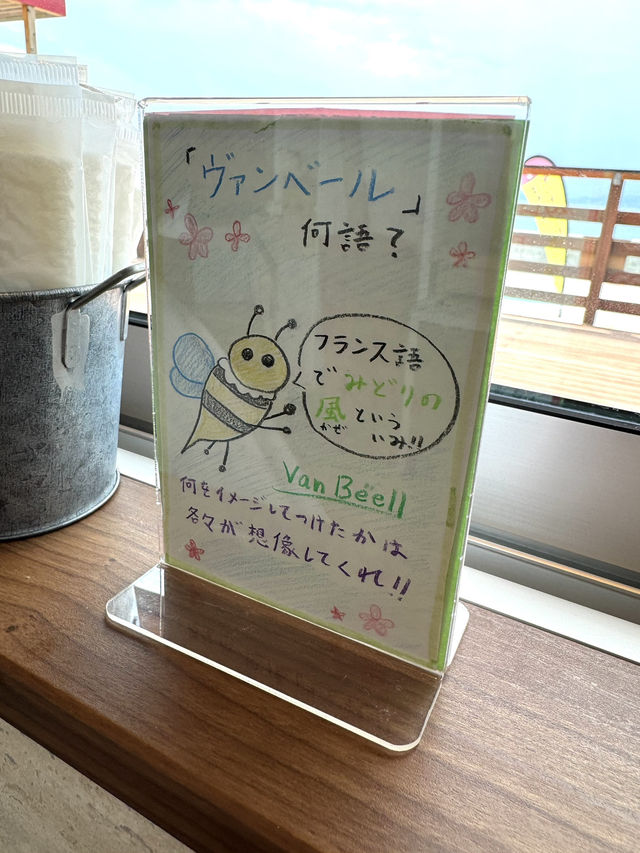 「ヴァンベール」
何語?
フランス語
でみどりの
風という
かぜ
いみ!!
Van Beell
何をイメージしてつけたかは
各々が想像してくれ!!